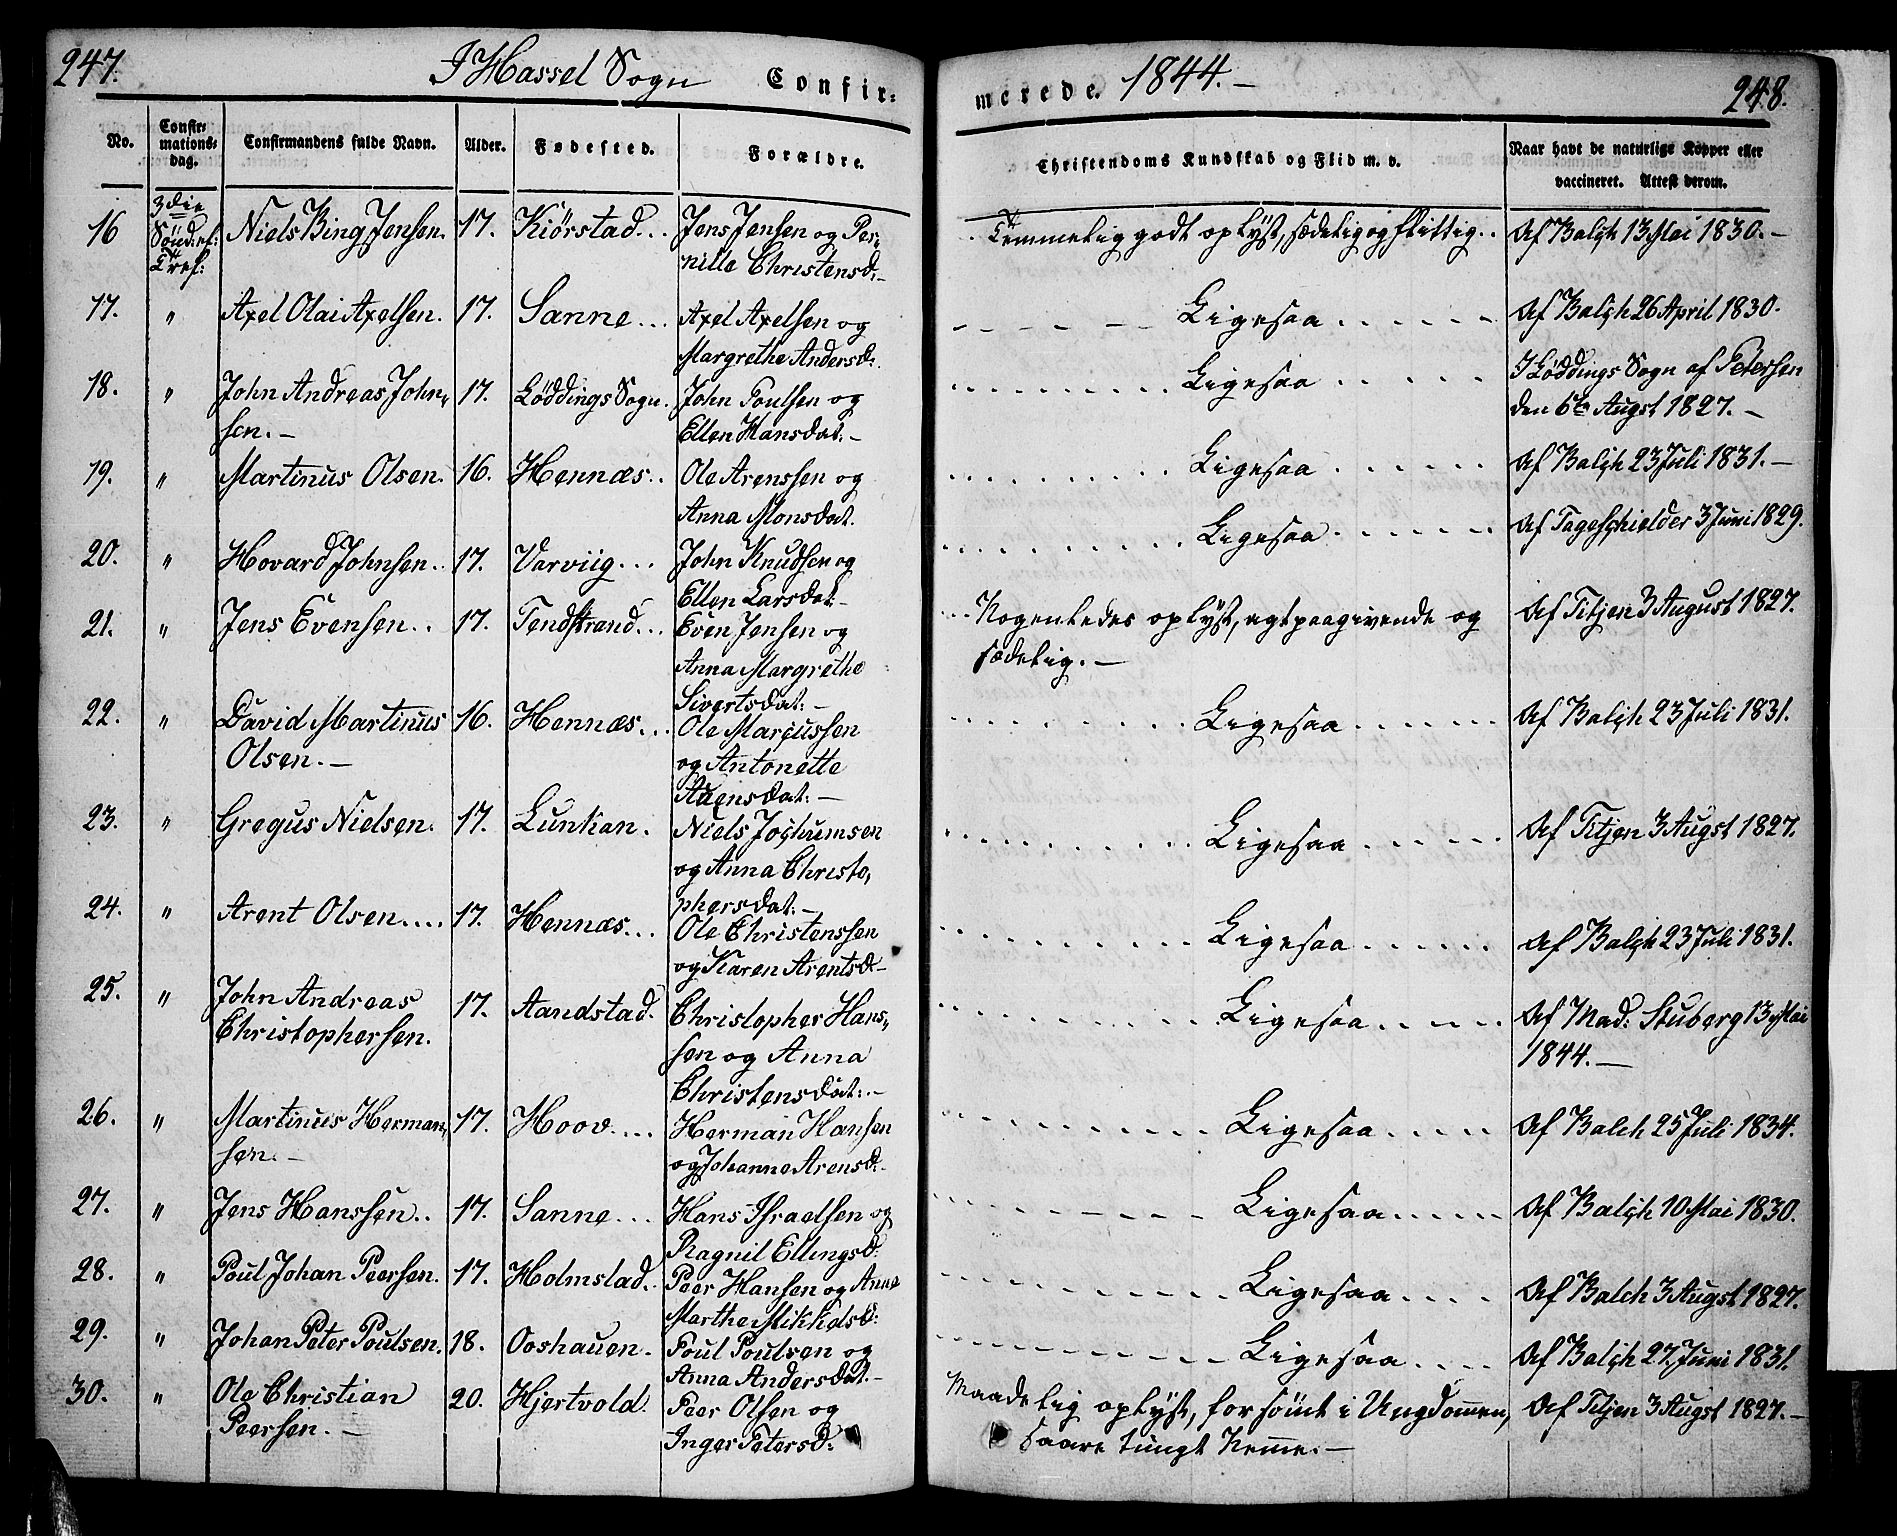 247.
I Hassel Sogn Confir-
merede. 1844.
248.
No.
Confir-
mations-
dag.
Confirmandens fulde Navn.
Alder.
Fødested.
Forældre.
Christendoms Kundskab og Flid m. v.
Naar havt de naturlige Kopper eller
vaccineret. Attest derom.
16 3die Niels Bing Jensen. 17. Kiörstad... Jens Jensen og Per-
Sönd: ef: nille Christensd:
Tref:
Temmelig godt oplyst, sædelig og flittig.. Af Balch 13 Mai 1830.
17. " Axel Olai Axelsen. 17. Sanne... Axel Axelsen og
Margrethe Andersd:
Ligesaa Af Balch 26 April 1830.
18. " John Andreas John- 17. Löddings Sogn. John Poulsen og
sen. Ellen Hansdat:
Ligesaa I Löddings Sogn af Petersen
den 6te Augst 1827.
19. " Martinus Olsen. 16. Hennæs.. Ole Arenssen og
Anna Monsdat.
Ligesaa Af Balch 23 Juli 1831.
20. " Hovard Johnsen.. 17. Varviig... John Knudsen og
Ellen Larsdat
Ligesaa Af Tageschielder 3 Juni 1829.
21. " Jens Evensen.. 17. Tendstrand... Even Jensen og
Anna Margrethe
Sivertsdat:
Nogenledes oplyst, agtpaagivende og Af Titjen 3 August 1827.
sædelig.
22. " David Martinus 16. Hennæs... Ole Marcussen
Olsen. og Antonette
Auensdat:
Ligesaa Af Balch 23 Juli 1831.
23. " Gregus Nielsen. 17. Lunkan. Niels Jochumsen
og Anna Christo-
phersdat:
Ligesaa Af Titjen 3 Augst 1827.
24. " Arent Olsen.... 17. Hennæs... Ole Christenssen
og Karen Arentsd
Ligesaa Af Balch 23 Juli 1831.
25. " John Andreas 17. Aandstad. Christopher Hans-
Christophersen. sen og Anna
Christensdat:
Ligesaa Af Mad: Stuberg 13 Mai
1844.
26. " Martinus Herman- 17. Hoov.... Herman Hansen
sen. og Johanne Arensd:
Ligesaa Af Balch 25 Juli 1834.
27. " Jens Hanssen.. 17. Sanne... Hans Israelsen og
Ragnil Ellingsd:
Ligesaa Af Balch 10 Mai 1830.
28. " Poul Johan Peersen. 17. Holmstad.. Peer Hansen og Anne
Marthe Mikkelsd:
Ligesaa Af Balch 3 Augst 1827.
29. " Johan Peter Poulsen. 18. Ooshauen. Poul Poulsen og
Anna Andersdat.
Ligesaa Af Balch 27 Juni 1831.
30. " Ole Christian 20. Hjertvold. Peer Olsen og
Peersen. Inger Petersd:
Maadelig oplyst, forsömt i Ungdommen, Af Titjen 3 Augst 1827.
saare tungt Nemme.